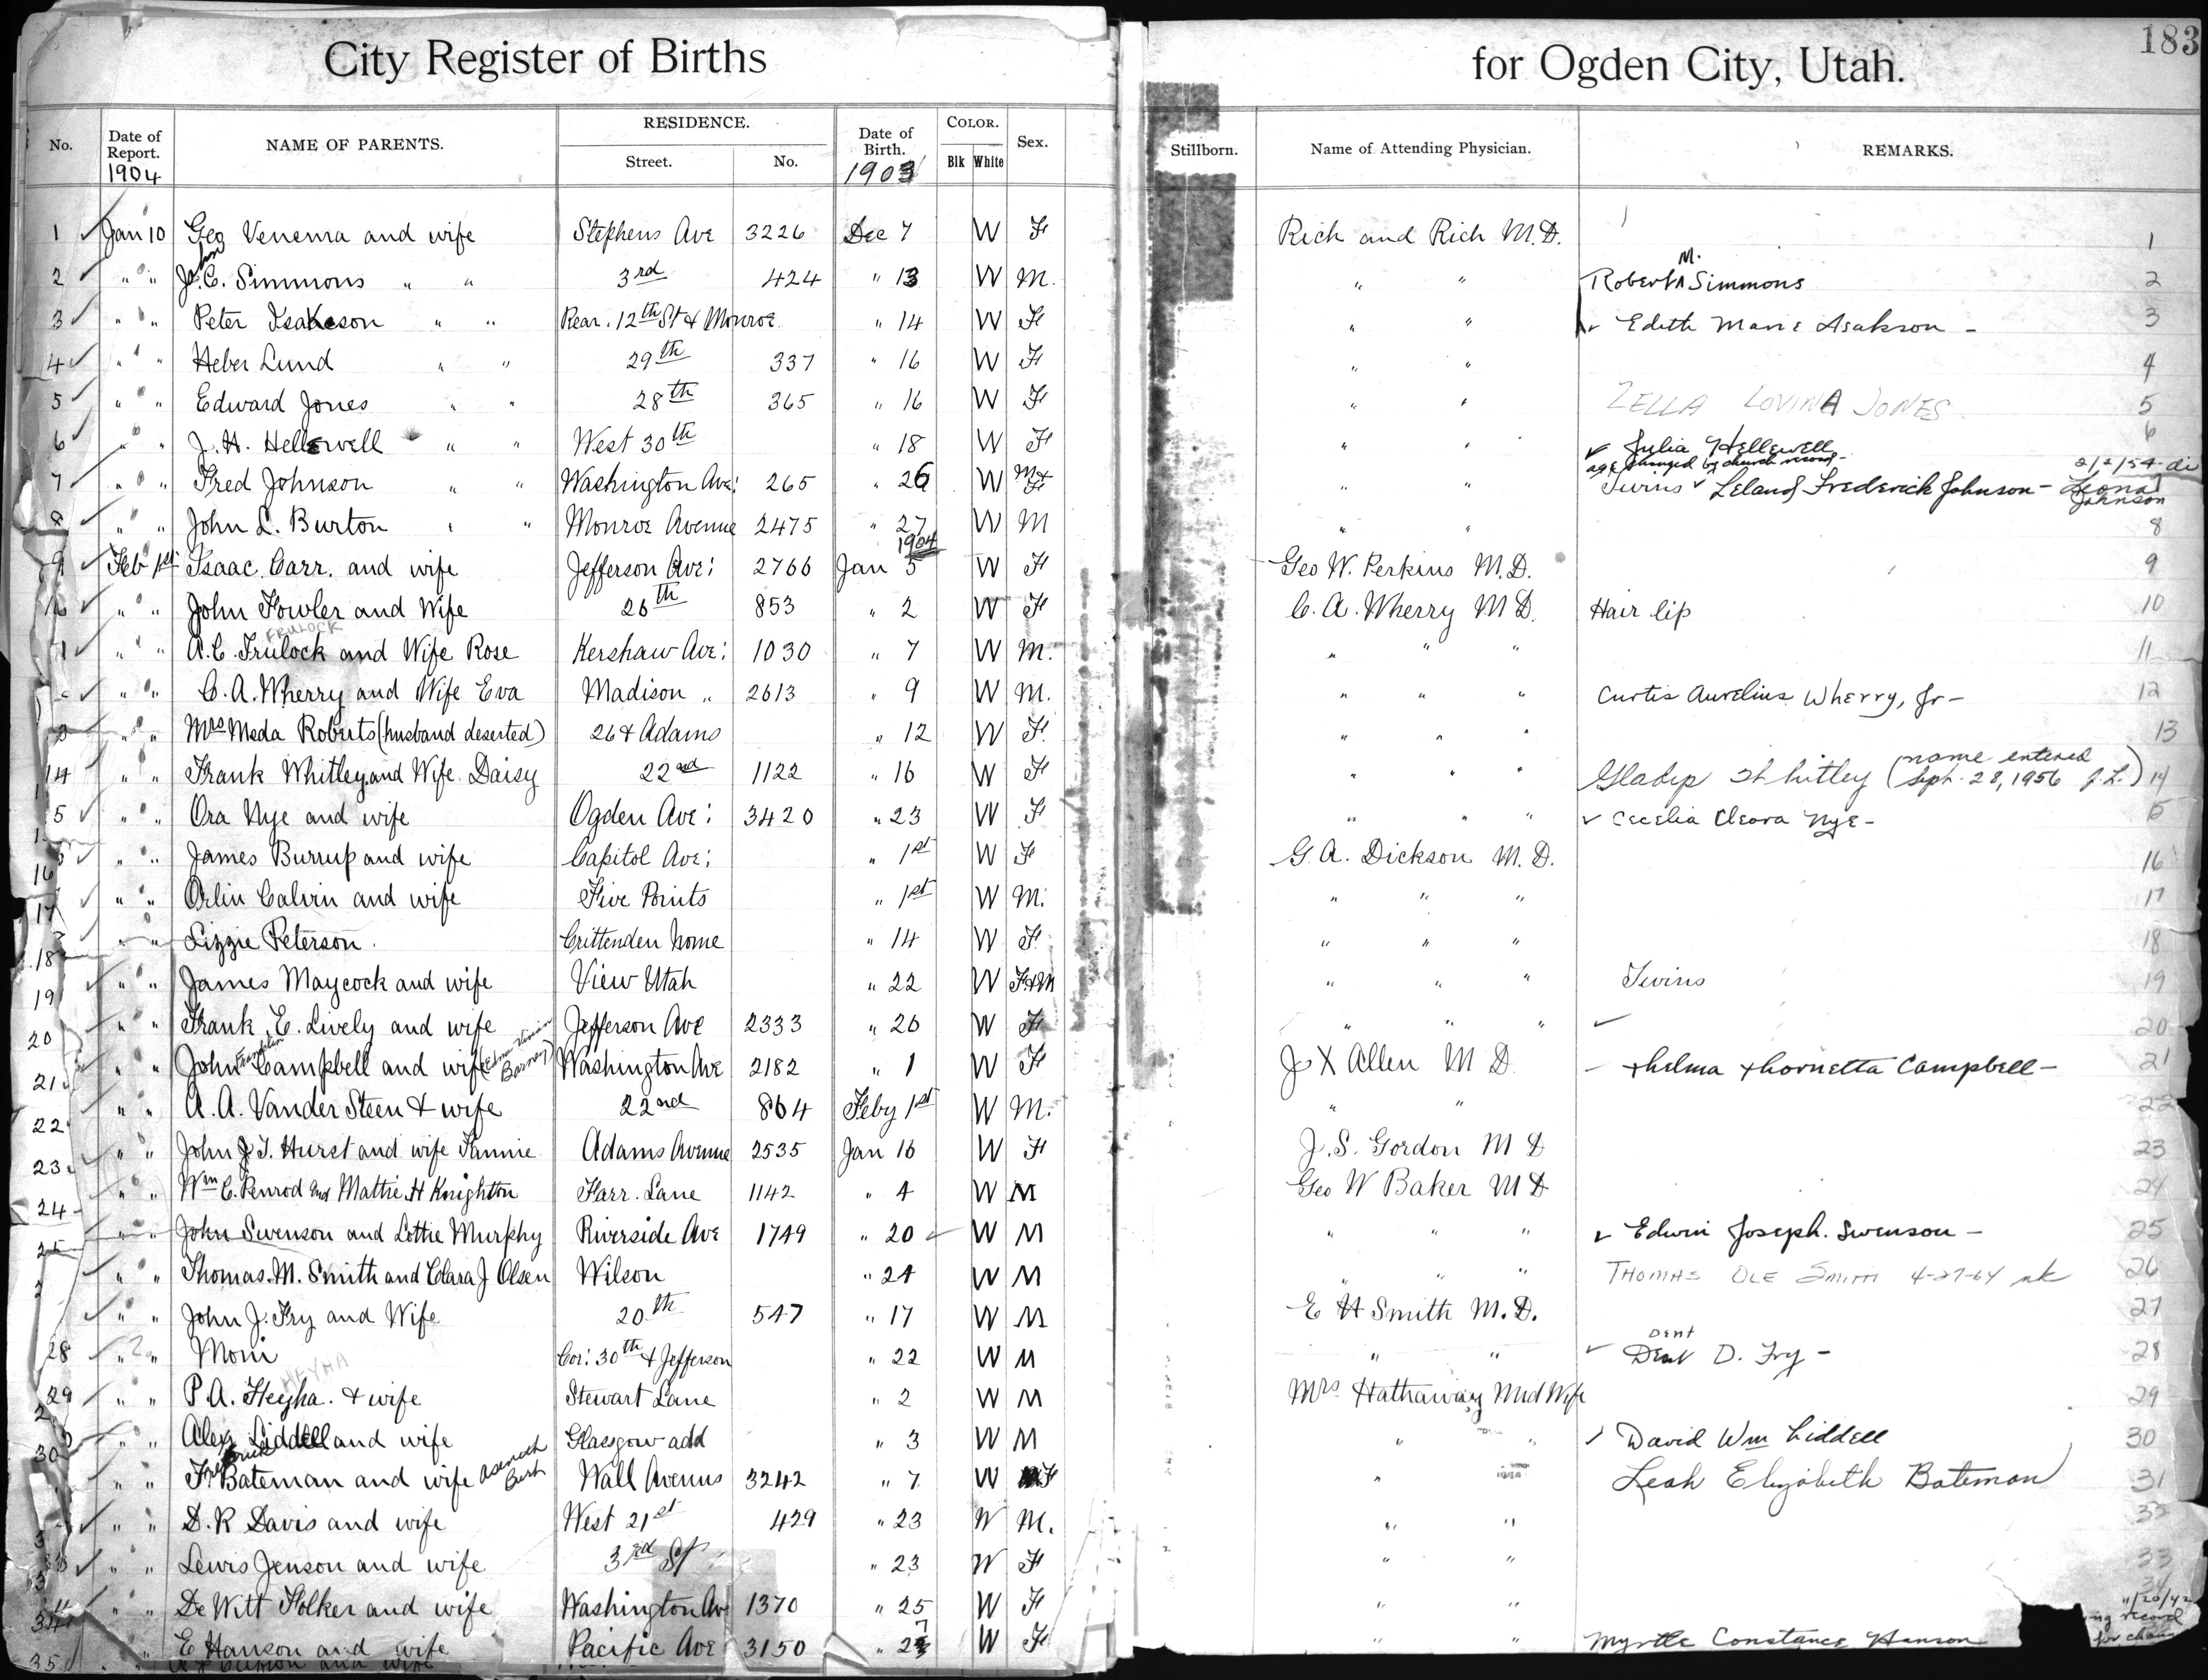 183
City Register of Births for Ogden City, Utah.
No. Date of Report. 1904 NAME OF PARENTS. RESIDENCE. Street. No. Date of Birth. 1903 COLOR. Blk White Sex. Stillborn. Name of Attending Physician. REMARKS.
1 Jan 10 Geo Venema and wife Stephens Ave 3226 Dec 7 W F Rich and Rich M.D. 1
2 " " John C. Simmons " " 3rd 424 " 13 W M. " " Robert M. Simmons 2
3 " " Peter Isakson " " Rear. 12th St & Monroe " 14 W F " " Edith Marie Asakson - 3
4 " " Heber Lund " " 29th 337 " 16 W F " " 4
5 " " Edward Jones " " 28th 365 " 16 W F " " ZELLA LOVINA JONES 5
6 " " J. H. Hellewell " " West 30th " 18 W F " " Julia Hellewell 6
age changed by church record - 2/2/54
7 " " Fred Johnson " " Washington Ave: 265 " 26 W M+F " " Twins Leland Frederick Johnson - Leona Johnson
8 " " John L. Burton " " Monroe Avenue 2475 " 27 W M " " 8
1904
9 Feb 1st Isaac Carr. and wife Jefferson Ave: 2766 Jan 5 W F Geo W. Perkins M.D. 9
" " John Fowler and Wife 26th 853 " 2 W F C. A. Wherry M D. Hair lip 10
" " A. C. Trulock and Wife Rose Kershaw Ave: 1030 " 7 W M. " " " 11
" " C. A. Wherry and Wife Eva Madison " 2613 " 9 W M. " " " Curtis Aurelius Wherry, Jr - 12
" " Mrs Meda Roberts (husband deserted) 26 & Adams " 12 W F. " " " 13
14 " " Frank Whitley and Wife Daisy 22nd 1122 " 16 W F " " " Gladys Whitley (name entered Sept. 28, 1956 J.L.) 14
5 " " Ora Nye and wife Ogden Ave: 3420 " 23 W F " " " Cecelia Cleora Nye - 15
16 " " James Burrup and wife Capitol Ave: " 1st W F G. A. Dickson M. D. 16
17 " " Orlin Calvin and wife Five Points " 1st W M. " " " 17
18 " " Lizzie Peterson. Crittenden home " 14 W F. " " " 18
19 " " James Maycock and wife View Utah " 22 W F&M " " " Twins 19
20 " " Frank E. Lively and wife Jefferson Ave 2333 " 26 W F " " " 20
21 " " John Franklin Campbell and wife (Edna Vivian Barney) Washington Ave 2182 " 1 W F J X Allen M D. - Thelma Thornetta Campbell - 21
22 " " A. A. Vander Steen & wife 22nd 864 Feby 1st W M. " " 22
23 " " John J. T. Hurst and wife Fannie Adams Avenue 2535 Jan 16 W F J. S. Gordon M D 23
24 " " Wm C. Penrod and Mattie H Knighton Farr. Lane 1142 " 4 W M Geo W Baker M D 24
25 " " John Swenson and Lottie Murphy Riverside Ave 1749 " 20 W M " " " Edwin Joseph. Swenson - 25
" " Thomas. M. Smith and Clara J Olsen Wilson " 24 W M " " " THOMAS OLE SMITH 4-27-64 26
" " John J. Fry and Wife 20th 547 " 17 W M E H Smith M. D. 27
28 " " Moni Cor: 30th & Jefferson " 22 W M " " Dent D. Fry - 28
Dent
29 " " P. A. Heyha. & wife Stewart Lane " 2 W M Mrs Hathaway Mid Wife 29
HEYHA
30 " " Alex Liddell and wife Glasgow add " 3 W M " " David Wm Liddell 30
" " Frederick Bateman and wife Asenath Burt Wall Avenue 3242 " 7 W F " Leah Elizabeth Bateman 31
" " D. R Davis and wife West 21st 429 " 23 W M. " "
33 " " Lewis Jenson and wife 3rd St " 23 W F " " 33
34 " " De Witt Folker and wife Washington Ave 1370 " 25 W F " " 34
35 " E Hanson and wife Pacific Ave 3150 " 27 W F " " Myrtle Constance Hanson 11/20/42